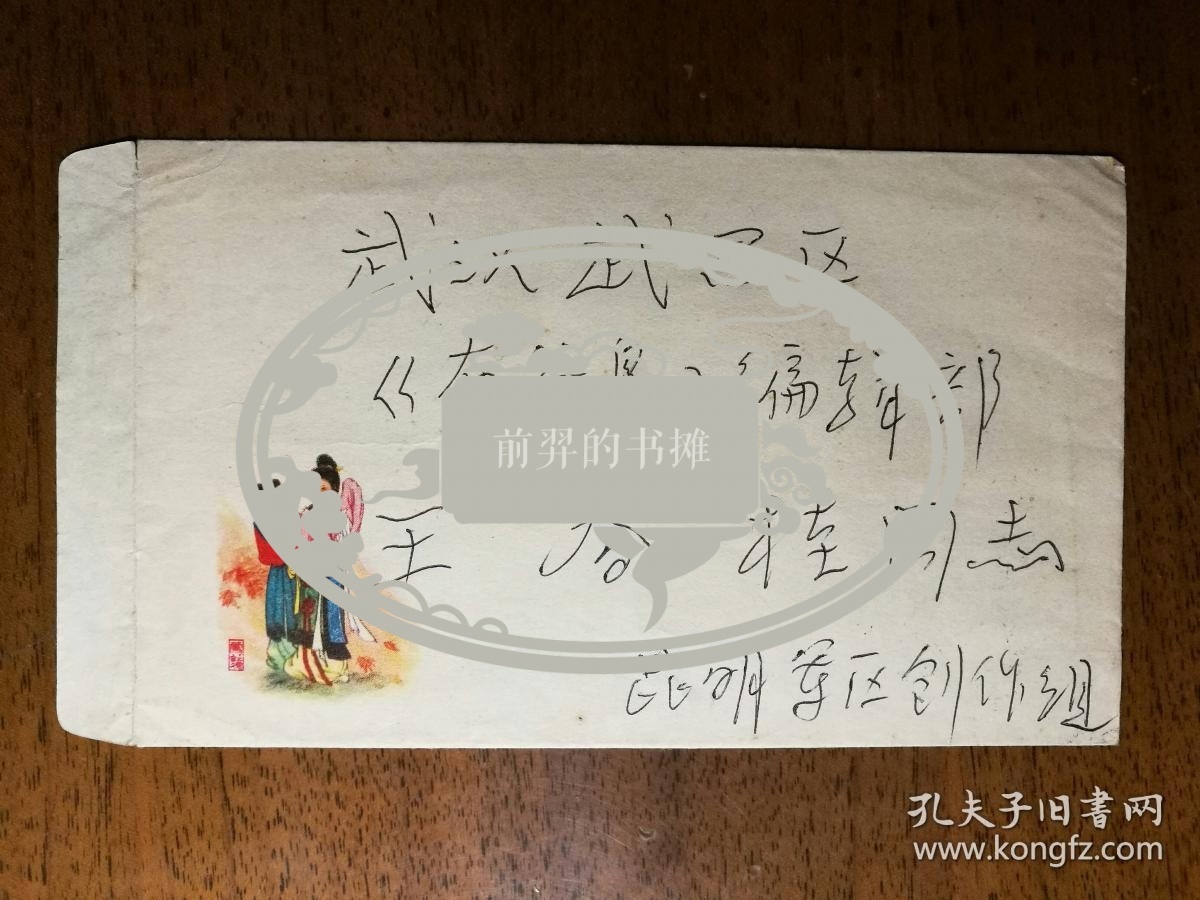 武汉 武昌区
《布谷鸟》编辑部
王 桂同志
昆明军区创作组
前羿的书摊
孔夫子旧书网
www.kongfz.com